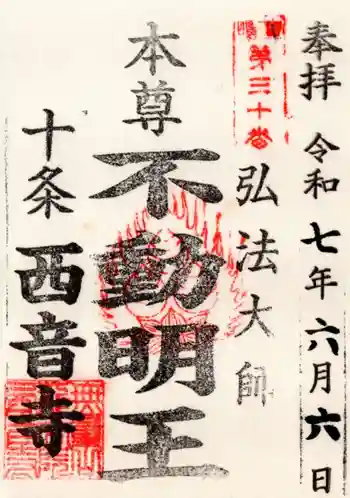 奉拝 令和七年六月六日
第三十番
弘法大師
本尊
不動明王
十条 西音寺